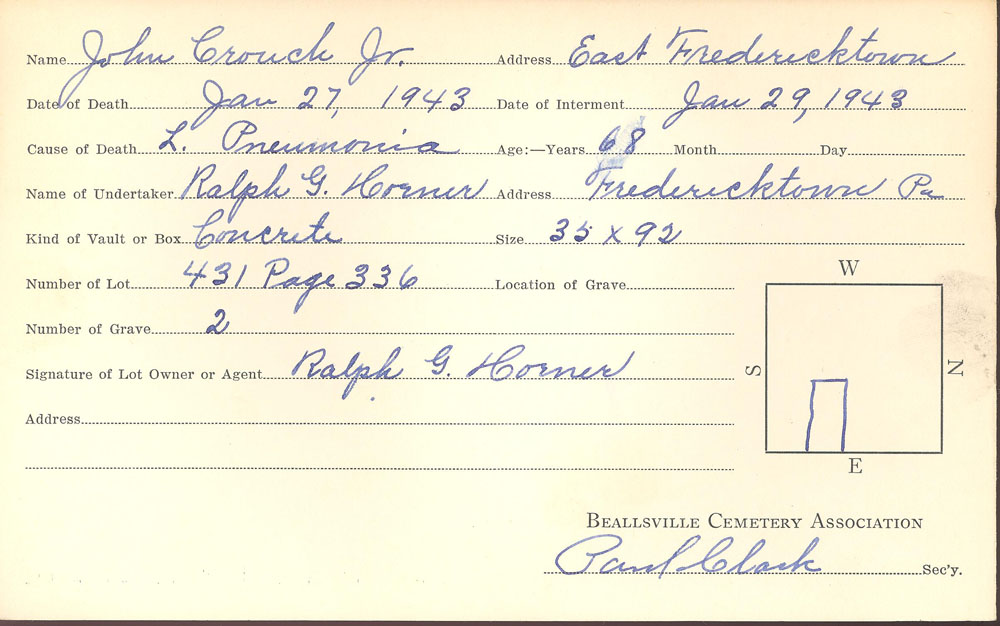 Name John Crouch Jr. Address East Fredericktown
Date of Death Jan 27, 1943 Date of Interment Jan 29, 1943
Cause of Death L. Pneumonia Age:—Years 68 Month Day
Name of Undertaker Ralph G. Horner Address Fredericktown Pa
Kind of Vault or Box Concrete Size 35 x 92
Number of Lot 431 Page 336 Location of Grave
Number of Grave 2
Signature of Lot Owner or Agent Ralph G. Horner
Address
W
S
N
E
BEALLSVILLE CEMETERY ASSOCIATION
Paul Clark Sec'y.